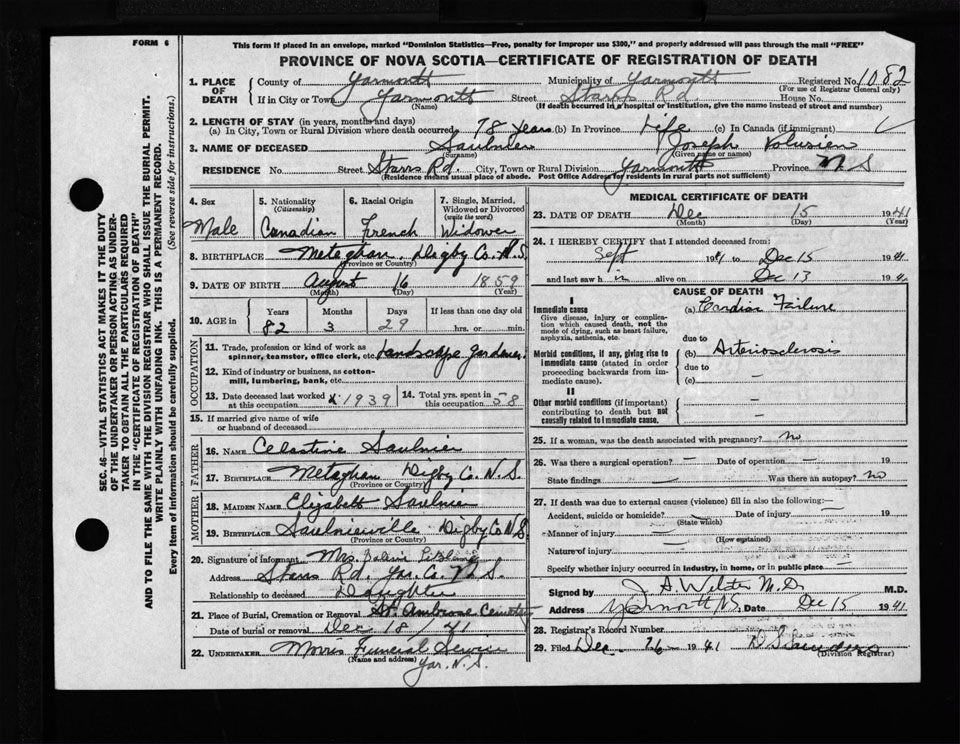 FORM 6
This form if placed in an envelope, marked "Dominion Statistics—Free, penalty for improper use $300," and properly addressed will pass through the mail "FREE"
PROVINCE OF NOVA SCOTIA—CERTIFICATE OF REGISTRATION OF DEATH
1. PLACE OF DEATH
County of Yarmouth Municipality of Yarmouth Registered No. 1082
(For use of Registrar General only)
If in City or Town Yarmouth Street Starrs Rd. House No.
(Name) (If death occurred in a hospital or institution, give the name instead of street and number)
2. LENGTH OF STAY (in years, months and days)
(a) In City, Town or Rural Division where death occurred 78 years (b) In Province Life (c) In Canada (if immigrant)
3. NAME OF DECEASED Saulnier Joseph Volusien
(Surname) (Given name or names)
RESIDENCE No. Street Starrs Rd. City, Town or Rural Division Yarmouth Province N S
(Residence means usual place of abode. Post Office Address for residents in rural parts not sufficient)
SEC. 46—VITAL STATISTICS ACT MAKES IT THE DUTY
OF THE UNDERTAKER OR PERSON ACTING AS UNDER-
TAKER TO OBTAIN ALL THE PARTICULARS REQUIRED
IN THE "CERTIFICATE OF REGISTRATION OF DEATH"
AND TO FILE THE SAME WITH THE DIVISION REGISTRAR WHO SHALL ISSUE THE BURIAL PERMIT.
WRITE PLAINLY WITH UNFADING INK. THIS IS A PERMANENT RECORD.
Every item of information should be carefully supplied. (See reverse side for instructions.)
4. Sex
Male
5. Nationality
(Citizenship)
Canadian
6. Racial Origin
French
7. Single, Married, Widowed or Divorced
(write the word)
Widower
8. BIRTHPLACE Meteghan, Digby Co. N.S.
(Province or Country)
9. DATE OF BIRTH August 16 1859
(Month) (Day) (Year)
10. AGE in Years Months Days If less than one day old
82 3 29 hrs. or min.
OCCUPATION
11. Trade, profession or kind of work as
spinner, teamster, office clerk, etc. Landscape gardener
12. Kind of industry or business, as cotton-
mill, lumbering, bank, etc.
13. Date deceased last worked at this occupation 1939
14. Total yrs. spent in this occupation 58
15. If married give name of wife
or husband of deceased
FATHER
16. NAME Celestine Saulnier
17. BIRTHPLACE Meteghan Digby Co. N.S.
(Province or Country)
MOTHER
18. MAIDEN NAME Elizabeth Saulnier
19. BIRTHPLACE Saulnierville Digby Co N S
(Province or Country)
20. Signature of informant Mrs.
Address Starrs Rd. Yar. Co. N.S.
Relationship to deceased Daughter
21. Place of Burial, Cremation or Removal St. Ambrose Cemetery
Date of burial or removal Dec 18/41
22. UNDERTAKER Morris Funeral Service
(Name and address) Yar. N.S.
MEDICAL CERTIFICATE OF DEATH
23. DATE OF DEATH Dec 15 1941
(Month) (Day) (Year)
24. I HEREBY CERTIFY that I attended deceased from:
Sept 1941 to Dec 15 1941
and last saw h im alive on Dec 13 1941
CAUSE OF DEATH
I
Immediate cause
Give disease, injury or complica-
tion which caused death, not the
mode of dying, such as heart failure,
asphyxia, asthenia, etc.
(a) Cardiac Failure
due to
Morbid conditions, if any, giving rise to
immediate cause (stated in order
proceeding backwards from im-
mediate cause).
(b) Arteriosclerosis
due to
(c) —
II
Other morbid conditions (if important)
contributing to death but not
causally related to immediate cause.
25. If a woman, was the death associated with pregnancy? no
26. Was there a surgical operation? — Date of operation — 19
State findings — Was there an autopsy? no
27. If death was due to external causes (violence) fill in also the following:—
Accident, suicide or homicide? Date of injury 19
(State which)
Manner of injury —
(How sustained)
Nature of injury
Specify whether injury occurred in industry, in home, or in public place —
Signed by M.D. M.D.
Address Yarmouth NS. Date Dec 15 1941
28. Registrar's Record Number
29. Filed Dec. 26 1941
(Division Registrar)